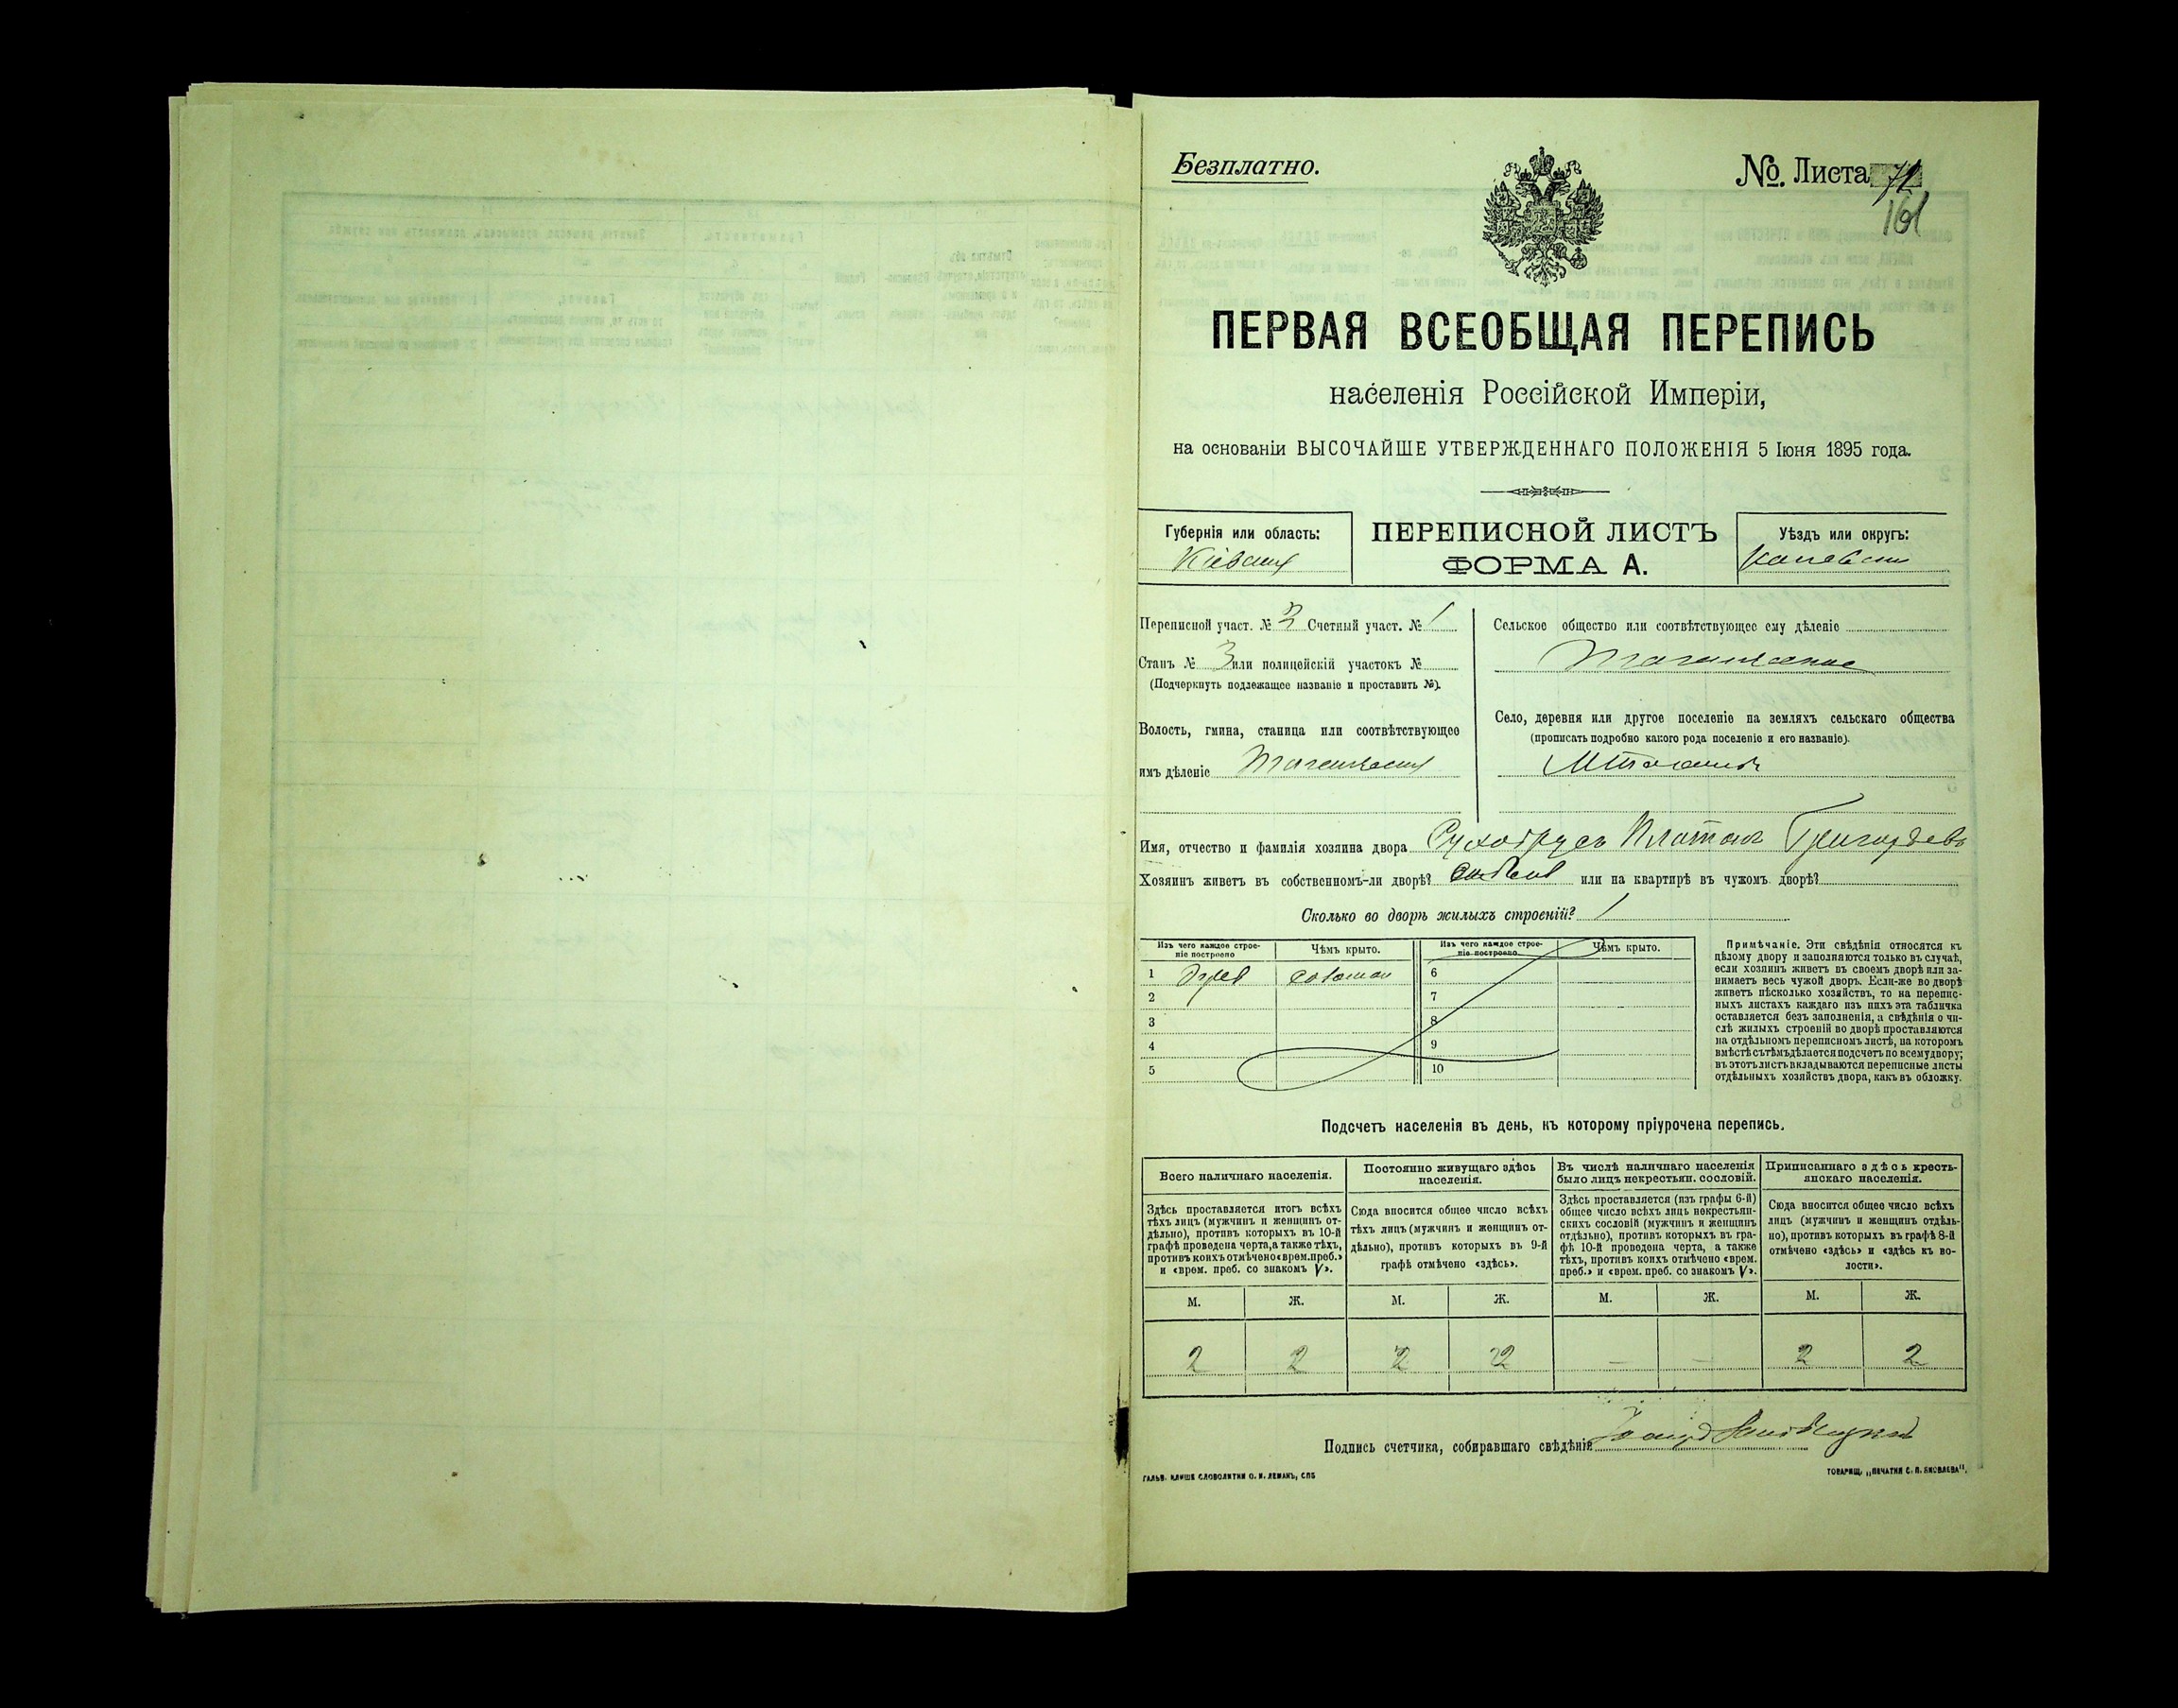 Безплатно.
№. Листа 71
161
ПЕРВАЯ ВСЕОБЩАЯ ПЕРЕПИСЬ
населенія Россійской Имперіи,
на основаніи ВЫСОЧАЙШЕ УТВЕРЖДЕННАГО ПОЛОЖЕНІЯ 5 Іюня 1895 года.
Губернія или область:
Кіевская
ПЕРЕПИСНОЙ ЛИСТЪ
ФОРМА А.
Уѣздъ или округъ:
Каневскій
Переписной участ. № 2 Счетный участ. № 1
Станъ № 3 или полицейскій участокъ №
(Подчеркнуть подлежащее названіе и проставить №).
Волость, гмина, станица или соотвѣтствующее
имъ дѣленіе
Сельское общество или соотвѣтствующее ему дѣленіе
Село, деревня или другое поселеніе на земляхъ сельскаго общества
(прописать подробно какого рода поселеніе и его названіе).
Имя, отчество и фамилія хозяина двора Сухобрусъ Платонъ Григорьевъ
Хозяинъ живетъ въ собственномъ-ли дворѣ? или на квартирѣ въ чужомъ дворѣ?
Сколько во дворѣ жилыхъ строеній? 1
Изъ чего каждое строе-
ніе построено
Чѣмъ крыто.
1 дерев солом
2
3
4
5
Изъ чего каждое строе-
ніе построено
Чѣмъ крыто.
6
7
8
9
10
Примѣчаніе. Эти свѣдѣнія относятся къ
цѣлому двору и заполняются только въ случаѣ,
если хозяинъ живетъ въ своемъ дворѣ или за-
нимаетъ весь чужой дворъ. Если-же во дворѣ
живетъ нѣсколько хозяйствъ, то на перепис-
ныхъ листахъ каждаго изъ нихъ эта табличка
оставляется безъ заполненія, а свѣдѣнія о чи-
слѣ жилыхъ строеній во дворѣ проставляются
на отдѣльномъ переписномъ листѣ, на которомъ
вмѣстѣ съ тѣмъ дѣлается подсчетъ по всему двору;
въ этотъ листъ вкладываются переписные листы
отдѣльныхъ хозяйствъ двора, какъ въ обложку.
Подсчетъ населенія въ день, къ которому пріурочена перепись.
Всего наличнаго населенія.
Здѣсь проставляется итогъ всѣхъ
тѣхъ лицъ (мужчинъ и женщинъ от-
дѣльно), противъ которыхъ въ 10-й
графѣ проведена черта, а также тѣхъ,
противъ коихъ отмѣчено «врем. преб.»
и «врем. преб. со знакомъ V».
Постоянно живущаго здѣсь
населенія.
Сюда вносится общее число всѣхъ
тѣхъ лицъ (мужчинъ и женщинъ от-
дѣльно), противъ которыхъ въ 9-й
графѣ отмѣчено «здѣсь».
Въ числѣ наличнаго населенія
было лицъ некрестьян. сословій.
Здѣсь проставляется (изъ графы 6-й)
общее число всѣхъ лицъ некрестьян-
скихъ сословій (мужчинъ и женщинъ
отдѣльно), противъ которыхъ въ гра-
фѣ 10-й проведена черта, а также
тѣхъ, противъ коихъ отмѣчено «врем.
преб.» и «врем. преб. со знакомъ V».
Приписаннаго здѣсь кресть-
янскаго населенія.
Сюда вносится общее число всѣхъ
лицъ (мужчинъ и женщинъ отдѣль-
но), противъ которыхъ въ графѣ 8-й
отмѣчено «здѣсь» и «здѣсь къ во-
лости».
М. Ж. М. Ж. М. Ж. М. Ж.
2 2 2 2 — — 2 2
Подпись счетчика, собиравшаго свѣдѣнія
ГАЛЬВ. КЛИШЕ СЛОВОЛИТНИ О. И. ЛЕМАНЪ, СПБ
ТОВАРИЩ. „ПЕЧАТНЯ С. П. ЯКОВЛЕВА".